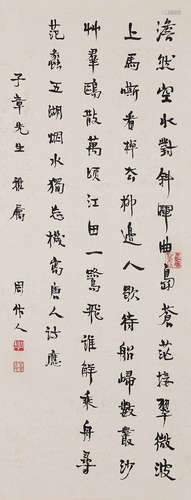 澹然空水對斜暉曲島蒼茫接翠微波
上馬嘶看棹去柳邊人歇待船歸數叢沙
艸羣鷗散萬頃江田一鷺飛誰解乘舟尋
范蠡五湖烟水獨忘機寫唐人詩應
子章先生 雅屬
周作人